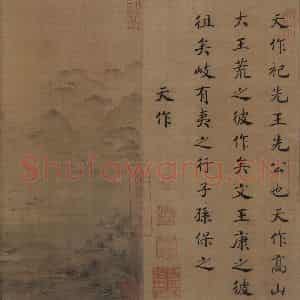 天作祀先王先公也天作高山
大王荒之彼作矣文王康之彼
徂矣岐有夷之行子孫保之
天作
Shufawang.cn